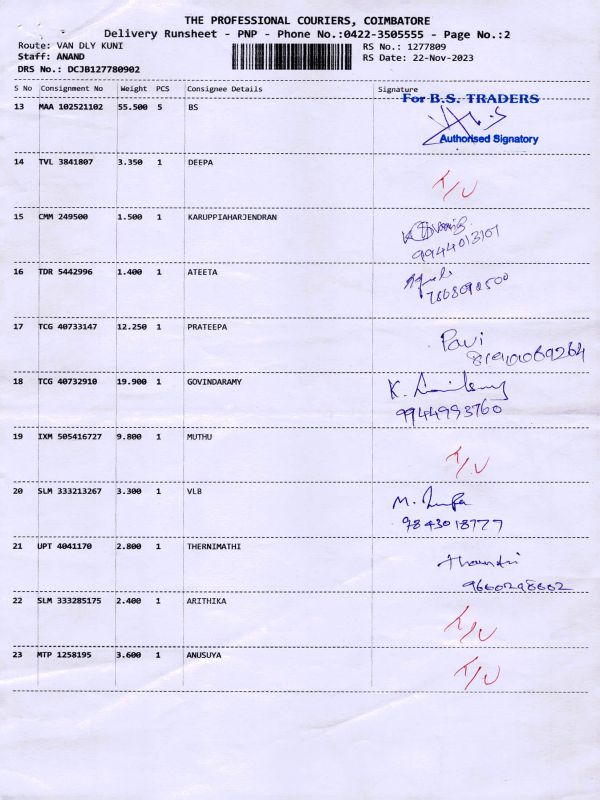 THE PROFESSIONAL COURIERS, COIMBATORE
Delivery Runsheet - PNP - Phone No.:0422-3505555 - Page No.:2
Route: VAN DLY KUNI RS No.: 1277809
Staff: ANAND RS Date: 22-Nov-2023
DRS No.: DCJB127780902
S No Consignment No Weight PCS Consignee Details Signature
For B.S. TRADERS
13 MAA 102521102 55.500 5 BS
Authorised Signatory
14 TVL 3841807 3.350 1 DEEPA
T/U
15 CMM 249500 1.500 1 KARUPPIAHARJENDRAN
9944013101
16 TDR 5442996 1.400 1 ATEETA
17 TCG 40733147 12.250 1 PRATEEPA
Pavi
18 TCG 40732910 19.900 1 GOVINDARAMY
K.
9944993760
19 IXM 505416727 9.800 1 MUTHU
T/U
20 SLM 333213267 3.300 1 VLB
M.
9843018777
21 UPT 4041170 2.800 1 THERNIMATHI
22 SLM 333285175 2.400 1 ARITHIKA
T/U
23 MTP 1258195 3.600 1 ANUSUYA
T/U